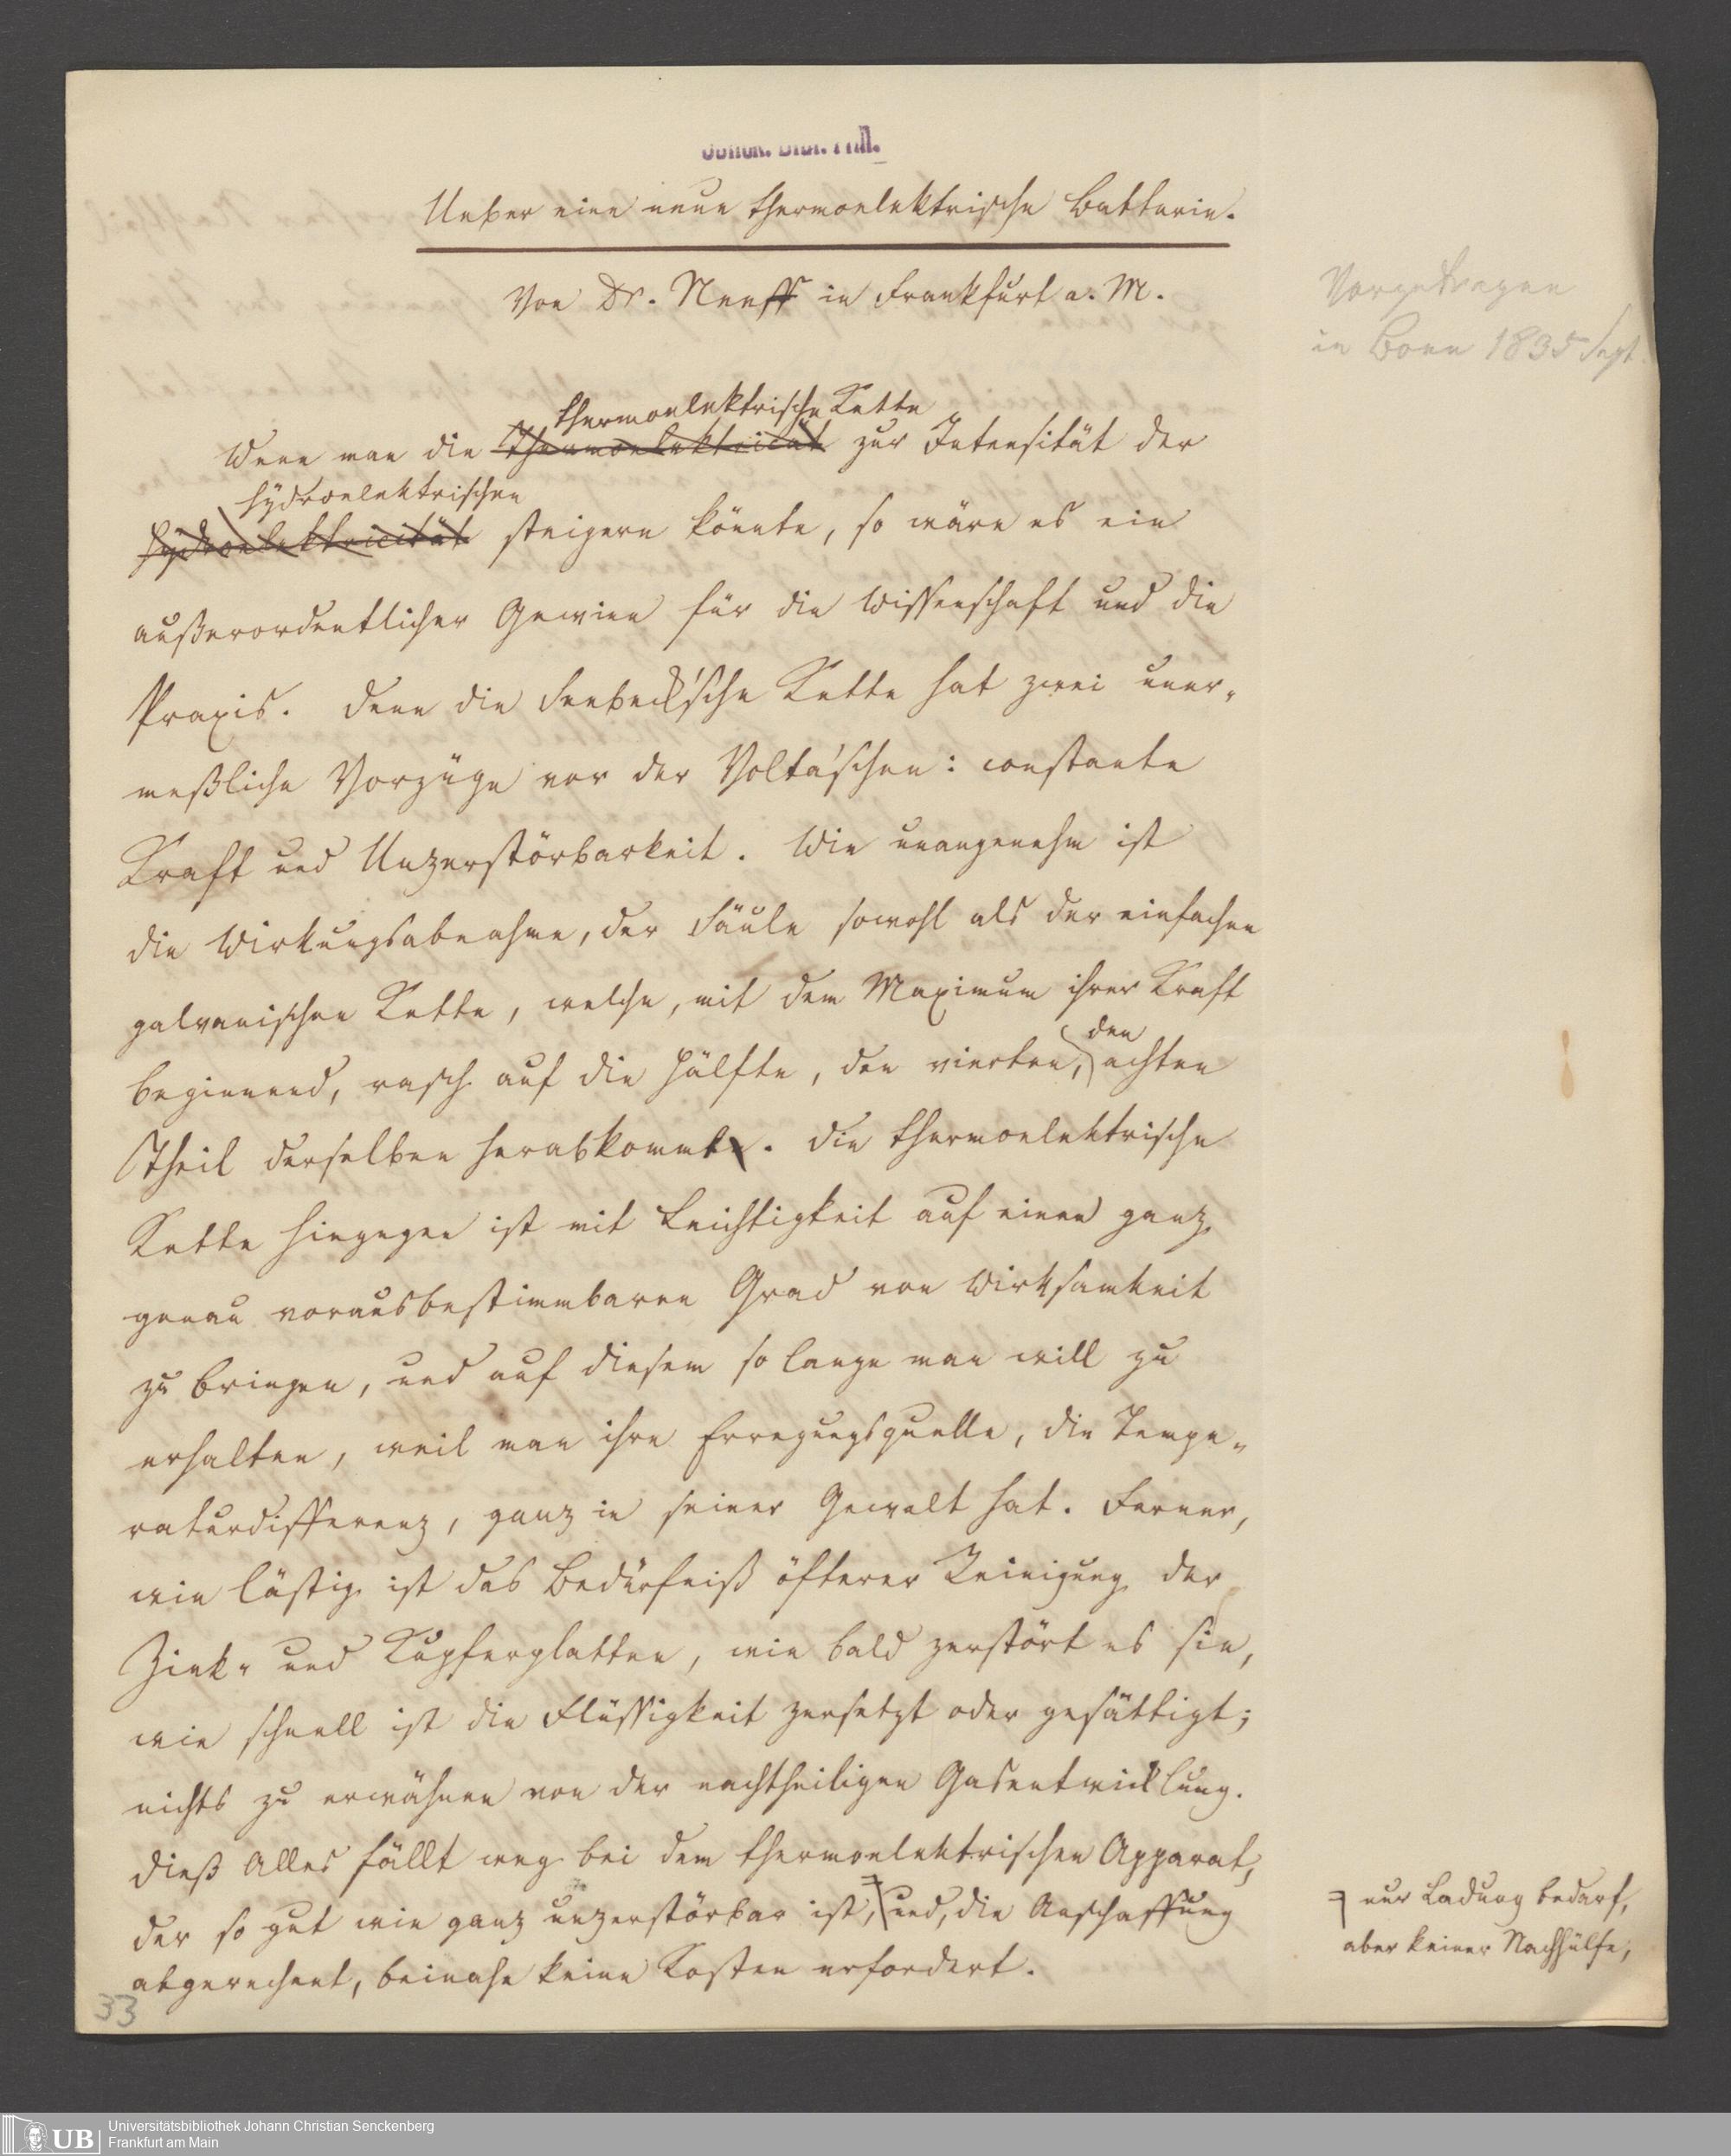 Ueber eine neue thermoelektrische Batterie.
Von Dr. Neeff in Frankfurt a. M.
Vorgetragen
in Bonn 1835 Sept.
thermoelektrische Kette
Wenn man die Thermoelektricität zur Intensität der
hydroelektrischen
Hydroelektricität steigern könnte, so wäre es ein
außerordentlicher Gewinn für die Wissenschaft und die
Praxis. Denn die Seebeck'sche Kette hat zwei uner-
meßliche Vorzüge vor der Volta'schen: constante
Kraft und Unzerstörbarkeit. Wie unangenehm ist
die Wirkungsabnahme, der Säule sowohl als der einfachen
galvanischen Kette, welche, mit dem Maximum ihrer Kraft
den
beginnend, rasch auf die Hälfte, den vierten, achten
Theil derselben herabkommt. Die thermoelektrische
Kette hingegen ist mit Leichtigkeit auf einen ganz
genau vorausbestimmbaren Grad von Wirksamkeit
zu bringen, und auf diesem so lange man will zu
erhalten, weil man ihre Erregungsquelle, die Tempe-
raturdifferenz, ganz in seiner Gewalt hat. Ferner,
wie lästig ist das Bedürfniß öfterer Reinigung der
Zink- und Kupferplatten, wie bald zerstört es sie,
wie schnell ist die Flüssigkeit zersetzt oder gesättigt;
nichts zu erwähnen von der nachtheiligen Gasentwicklung.
Dieß Alles fällt weg bei dem thermoelektrischen Apparat,
der so gut wie ganz unzerstörbar ist, und, die Anschaffung
abgerechnet, beinahe keine Kosten erfordert.
nur Ladung bedarf,
aber keiner Nachhülfe,
33
UB
Universitätsbibliothek Johann Christian Senckenberg
Frankfurt am Main